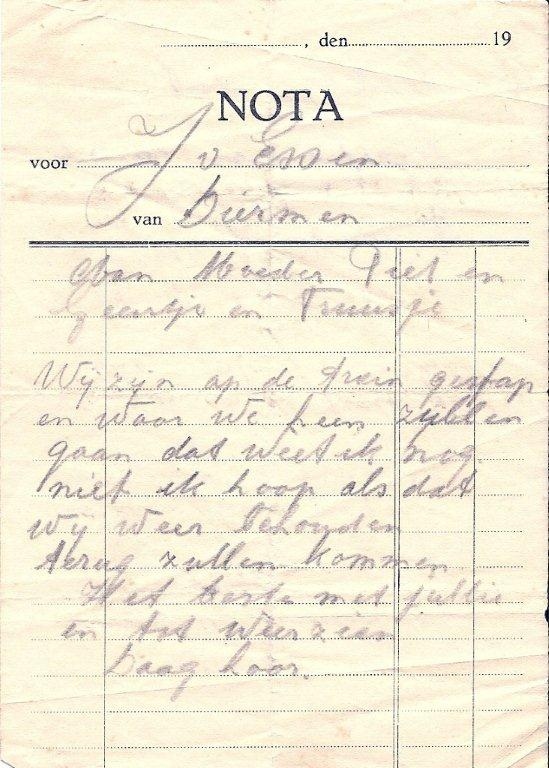 , den 19
NOTA
voor J v Essen
van Diermen
Aan Moeder Piet en
Geertje en Truusje
Wij zijn op de trein gestap
en waar we heen zullen
gaan dat weet ik nog
niet ik hoop als dat
wij weer behouden
terug zullen kommen
Het beste met jullie
en tot weerzien
Daag hoor.